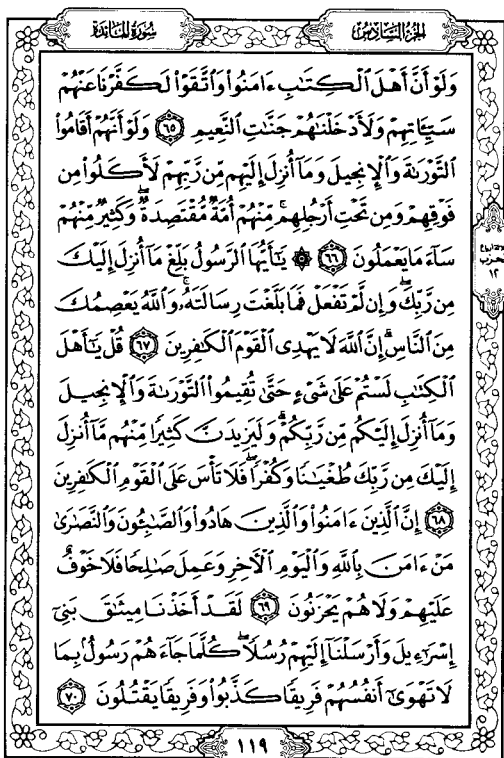 سُورَةُ المَائدة
الجُزءُ السَّادِسُ
وَلَوْ أَنَّ أَهْلَ ٱلْكِتَٰبِ ءَامَنُوا۟ وَٱتَّقَوْا۟ لَكَفَّرْنَا عَنْهُمْ
سَيِّـَٔاتِهِمْ وَلَأَدْخَلْنَٰهُمْ جَنَّٰتِ ٱلنَّعِيمِ ٦٥ وَلَوْ أَنَّهُمْ أَقَامُوا۟
ٱلتَّوْرَىٰةَ وَٱلْإِنجِيلَ وَمَآ أُنزِلَ إِلَيْهِم مِّن رَّبِّهِمْ لَأَكَلُوا۟ مِن
فَوْقِهِمْ وَمِن تَحْتِ أَرْجُلِهِم ۚ مِّنْهُمْ أُمَّةٌ مُّقْتَصِدَةٌ ۖ وَكَثِيرٌ مِّنْهُمْ
سَآءَ مَا يَعْمَلُونَ ٦٦ ۞ يَٰٓأَيُّهَا ٱلرَّسُولُ بَلِّغْ مَآ أُنزِلَ إِلَيْكَ
مِن رَّبِّكَ ۖ وَإِن لَّمْ تَفْعَلْ فَمَا بَلَّغْتَ رِسَالَتَهُۥ ۚ وَٱللَّهُ يَعْصِمُكَ
مِنَ ٱلنَّاسِ ۗ إِنَّ ٱللَّهَ لَا يَهْدِى ٱلْقَوْمَ ٱلْكَٰفِرِينَ ٦٧ قُلْ يَٰٓأَهْلَ
ٱلْكِتَٰبِ لَسْتُمْ عَلَىٰ شَىْءٍ حَتَّىٰ تُقِيمُوا۟ ٱلتَّوْرَىٰةَ وَٱلْإِنجِيلَ
وَمَآ أُنزِلَ إِلَيْكُم مِّن رَّبِّكُمْ ۗ وَلَيَزِيدَنَّ كَثِيرًا مِّنْهُم مَّآ أُنزِلَ
إِلَيْكَ مِن رَّبِّكَ طُغْيَٰنًا وَكُفْرًا ۖ فَلَا تَأْسَ عَلَى ٱلْقَوْمِ ٱلْكَٰفِرِينَ
٦٨ إِنَّ ٱلَّذِينَ ءَامَنُوا۟ وَٱلَّذِينَ هَادُوا۟ وَٱلصَّٰبِـُٔونَ وَٱلنَّصَٰرَىٰ
مَنْ ءَامَنَ بِٱللَّهِ وَٱلْيَوْمِ ٱلْـَٔاخِرِ وَعَمِلَ صَٰلِحًا فَلَا خَوْفٌ
عَلَيْهِمْ وَلَا هُمْ يَحْزَنُونَ ٦٩ لَقَدْ أَخَذْنَا مِيثَٰقَ بَنِىٓ
إِسْرَٰٓءِيلَ وَأَرْسَلْنَآ إِلَيْهِمْ رُسُلًا ۖ كُلَّمَا جَآءَهُمْ رَسُولٌۢ بِمَا
لَا تَهْوَىٰٓ أَنفُسُهُمْ فَرِيقًا كَذَّبُوا۟ وَفَرِيقًا يَقْتُلُونَ ٧٠
١١٩